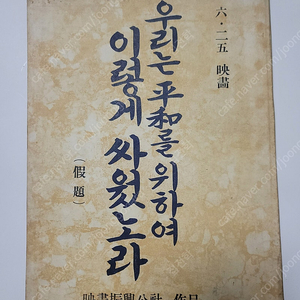 六·二五 映畵
우리는 平和를 위하여
이렇게 싸웠노라
(假題)
映畵振興公社 作品